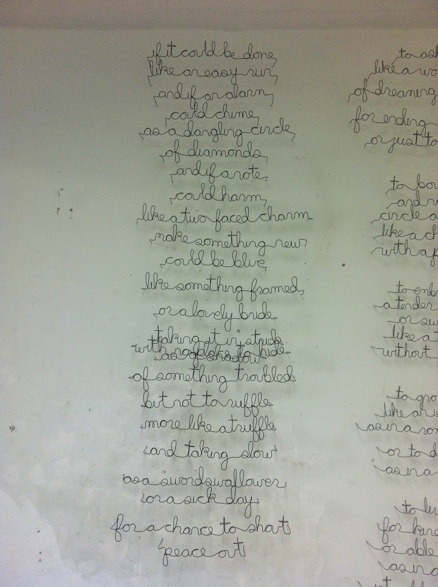 if it could be done
like an easy run
and if an alarm
could chime
as a dangling circle
of diamonds
and if a note
could harm
like a two faced charm
make something new
could be blue
like something framed
or a lovely bride
taking it in stride
with no place to hide
of something troubled
but not to ruffle
more like a truffle
and taking slow
as a sword swallower
or a sick day
for a chance to
peace out
to
like a
of dreaming
for ending
or just to
and
circle a
like a
with a
a tender
or
like a
without
as in a
or to
as in a
for
or able
as in a